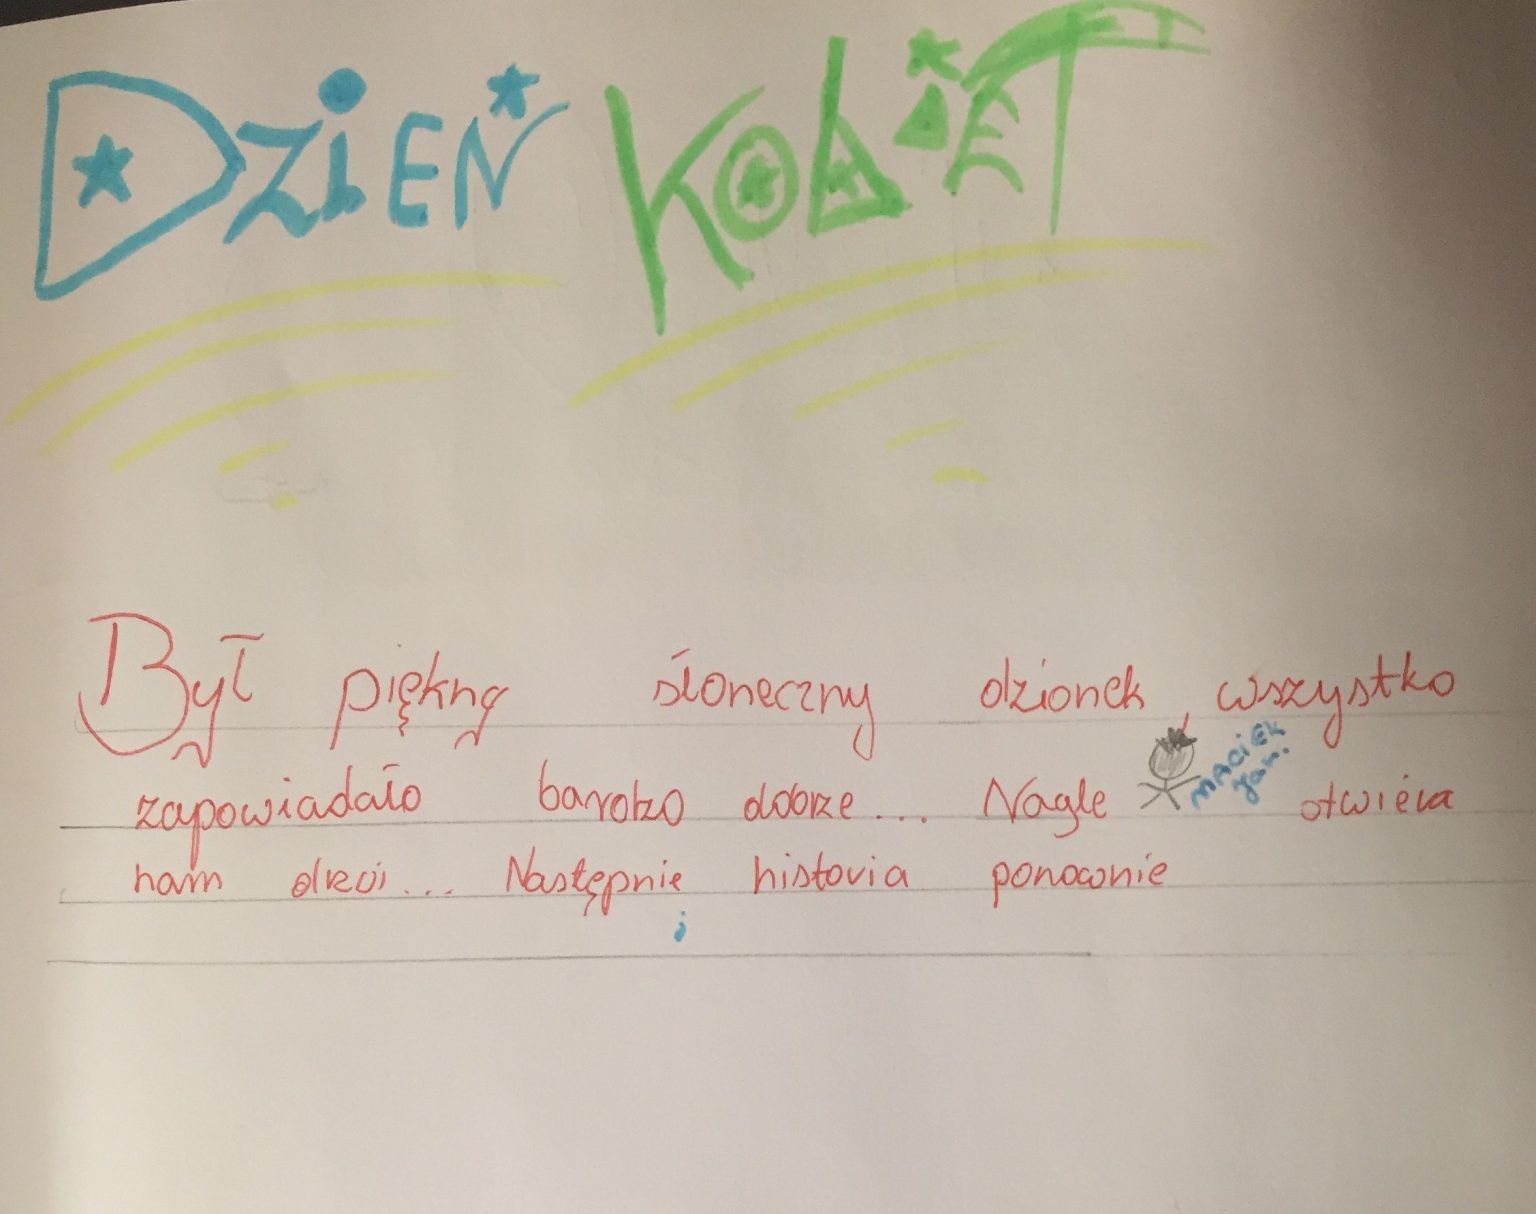 DZIEŃ KOBIET
Był piękny słoneczny dzionek, wszystko
zapowiadało bardzo dobrze... Nagle MACIEK Jan. otwiera
nam drzwi... Następnie historia ponownie